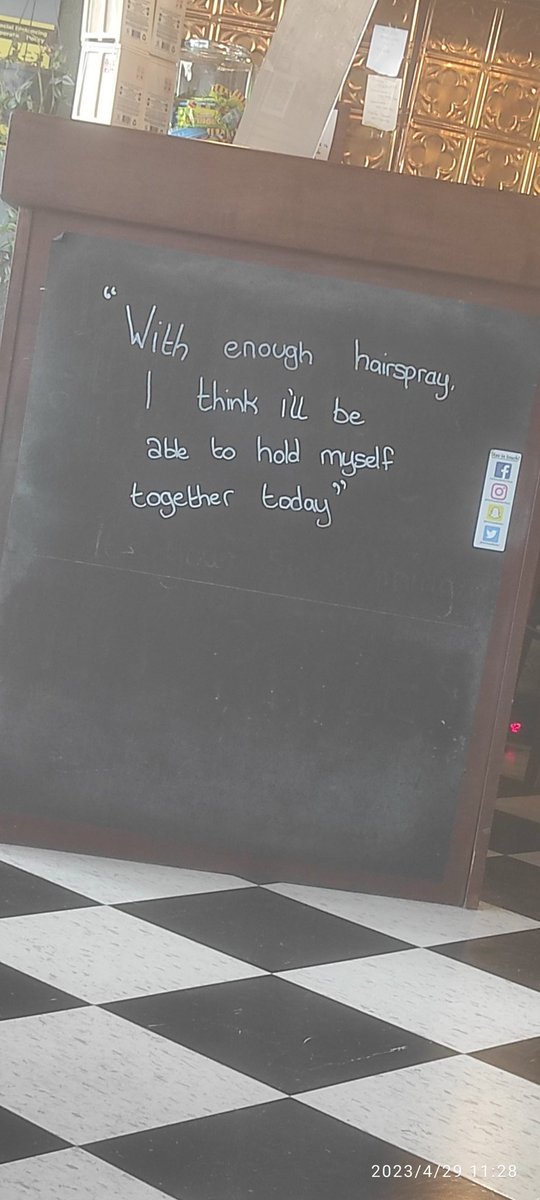 “With enough hairspray.
I think i'll be
able to hold myself
together today”
2023/4/29 11:28